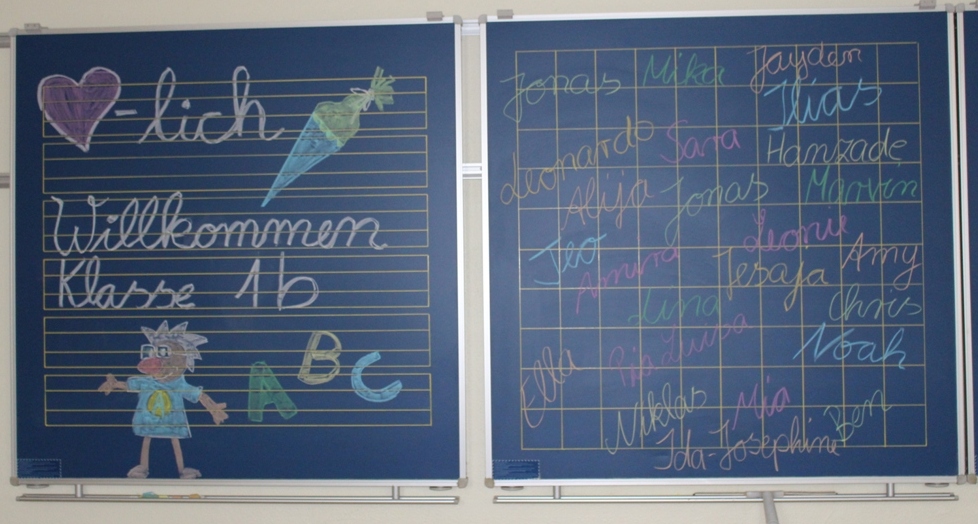 -lich
Willkommen
Klasse 1b
A B C
Jonas Mika Jayden
Ilias
Leonardo Sara Hamzade
Alija Jonas Marvin
Teo Leonie
Amira Jesaja Amy
Lina Chris
Pia Luisa Noah
Ella
Niklas Mia Ben
Ida-Josephine